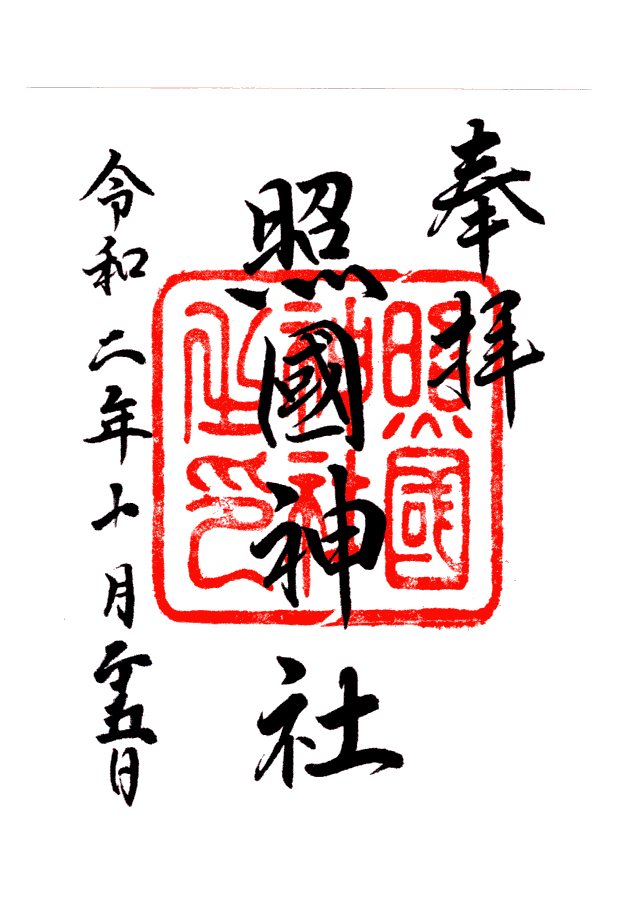 奉拝
照國神社
照國神社之印
令和二年十月二十五日